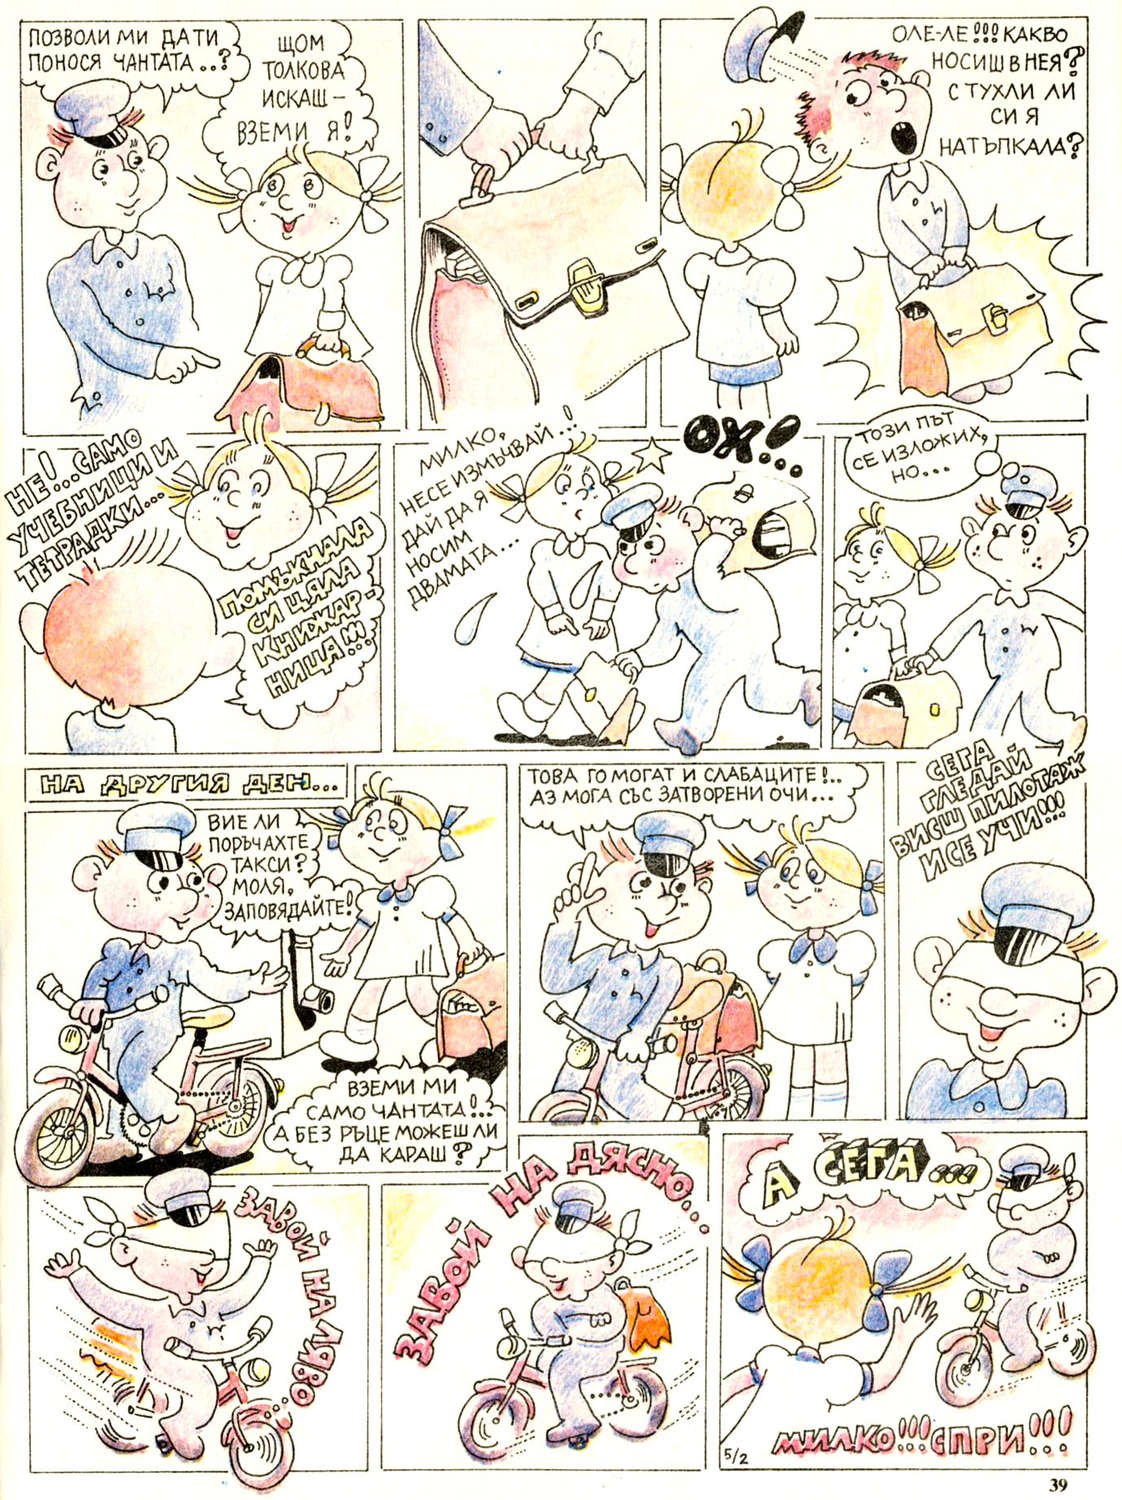 ПОЗВОЛИ МИ ДА ТИ
ПОНОСЯ ЧАНТАТА..?
ЩОМ
ТОЛКОВА
ИСКАШ –
ВЗЕМИ Я!
ОЛЕ-ЛЕ!!! КАКВО
НОСИШ В НЕЯ?
С ТУХЛИ ЛИ
СИ Я
НАТЪПКАЛА?
НЕ!.. САМО
УЧЕБНИЦИ И
ТЕТРАДКИ...
ПОМЪКНАЛА
СИ ЦЯЛА
КНИЖАР-
НИЦА!!!
МИЛКО,
НЕ СЕ ИЗМЪЧВАЙ..!
ДАЙ ДА Я
НОСИМ
ДВАМАТА...
ОХ!...
ТОЗИ ПЪТ
СЕ ИЗЛОЖИХ,
НО...
НА ДРУГИЯ ДЕН...
ВИЕ ЛИ
ПОРЪЧАХТЕ
ТАКСИ?
МОЛЯ,
ЗАПОВЯДАЙТЕ!
ВЗЕМИ МИ
САМО ЧАНТАТА!..
А БЕЗ РЪЦЕ МОЖЕШ ЛИ
ДА КАРАШ?
ТОВА ГО МОГАТ И СЛАБАЦИТЕ!..
АЗ МОГА СЪС ЗАТВОРЕНИ ОЧИ...
СЕГА
ГЛЕДАЙ
ВИСШ ПИЛОТАЖ
И СЕ УЧИ!!!
ЗАВОЙ НАЛЯВО...
ЗАВОЙ НАДЯСНО...
А СЕГА...
МИЛКО!!! СПРИ!!!
5/2
39